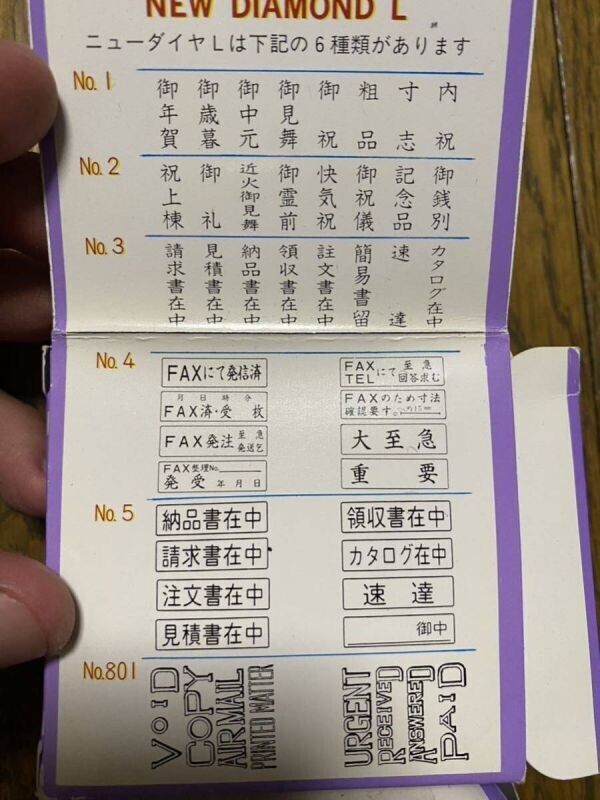 NEW DIAMOND L
ニューダイヤLは下記の6種類があります
No.1
内祝
寸志
粗品
御祝
御見舞
御中元
御歳暮
御年賀
No.2
御銭別
記念品
御祝儀
快気祝
御霊前
近火御見舞
御礼
祝上棟
No.3
カタログ在中
速達
簡易書留
註文書在中
領収書在中
納品書在中
見積書在中
請求書在中
No.4
FAXにて発信済
FAX TELにて至急回答求む
月日時分
FAX済・受 枚
FAXのため寸法
確認要す。
FAX発注至急発送乞
大至急
FAX整理No.
発受 年月日
重要
No.5
納品書在中
領収書在中
請求書在中
カタログ在中
注文書在中
速達
見積書在中
御中
No.801
VOID
COPY
AIRMAIL
PRINTED MATTER
URGENT
RECEIVED
ANSWERED
PAID